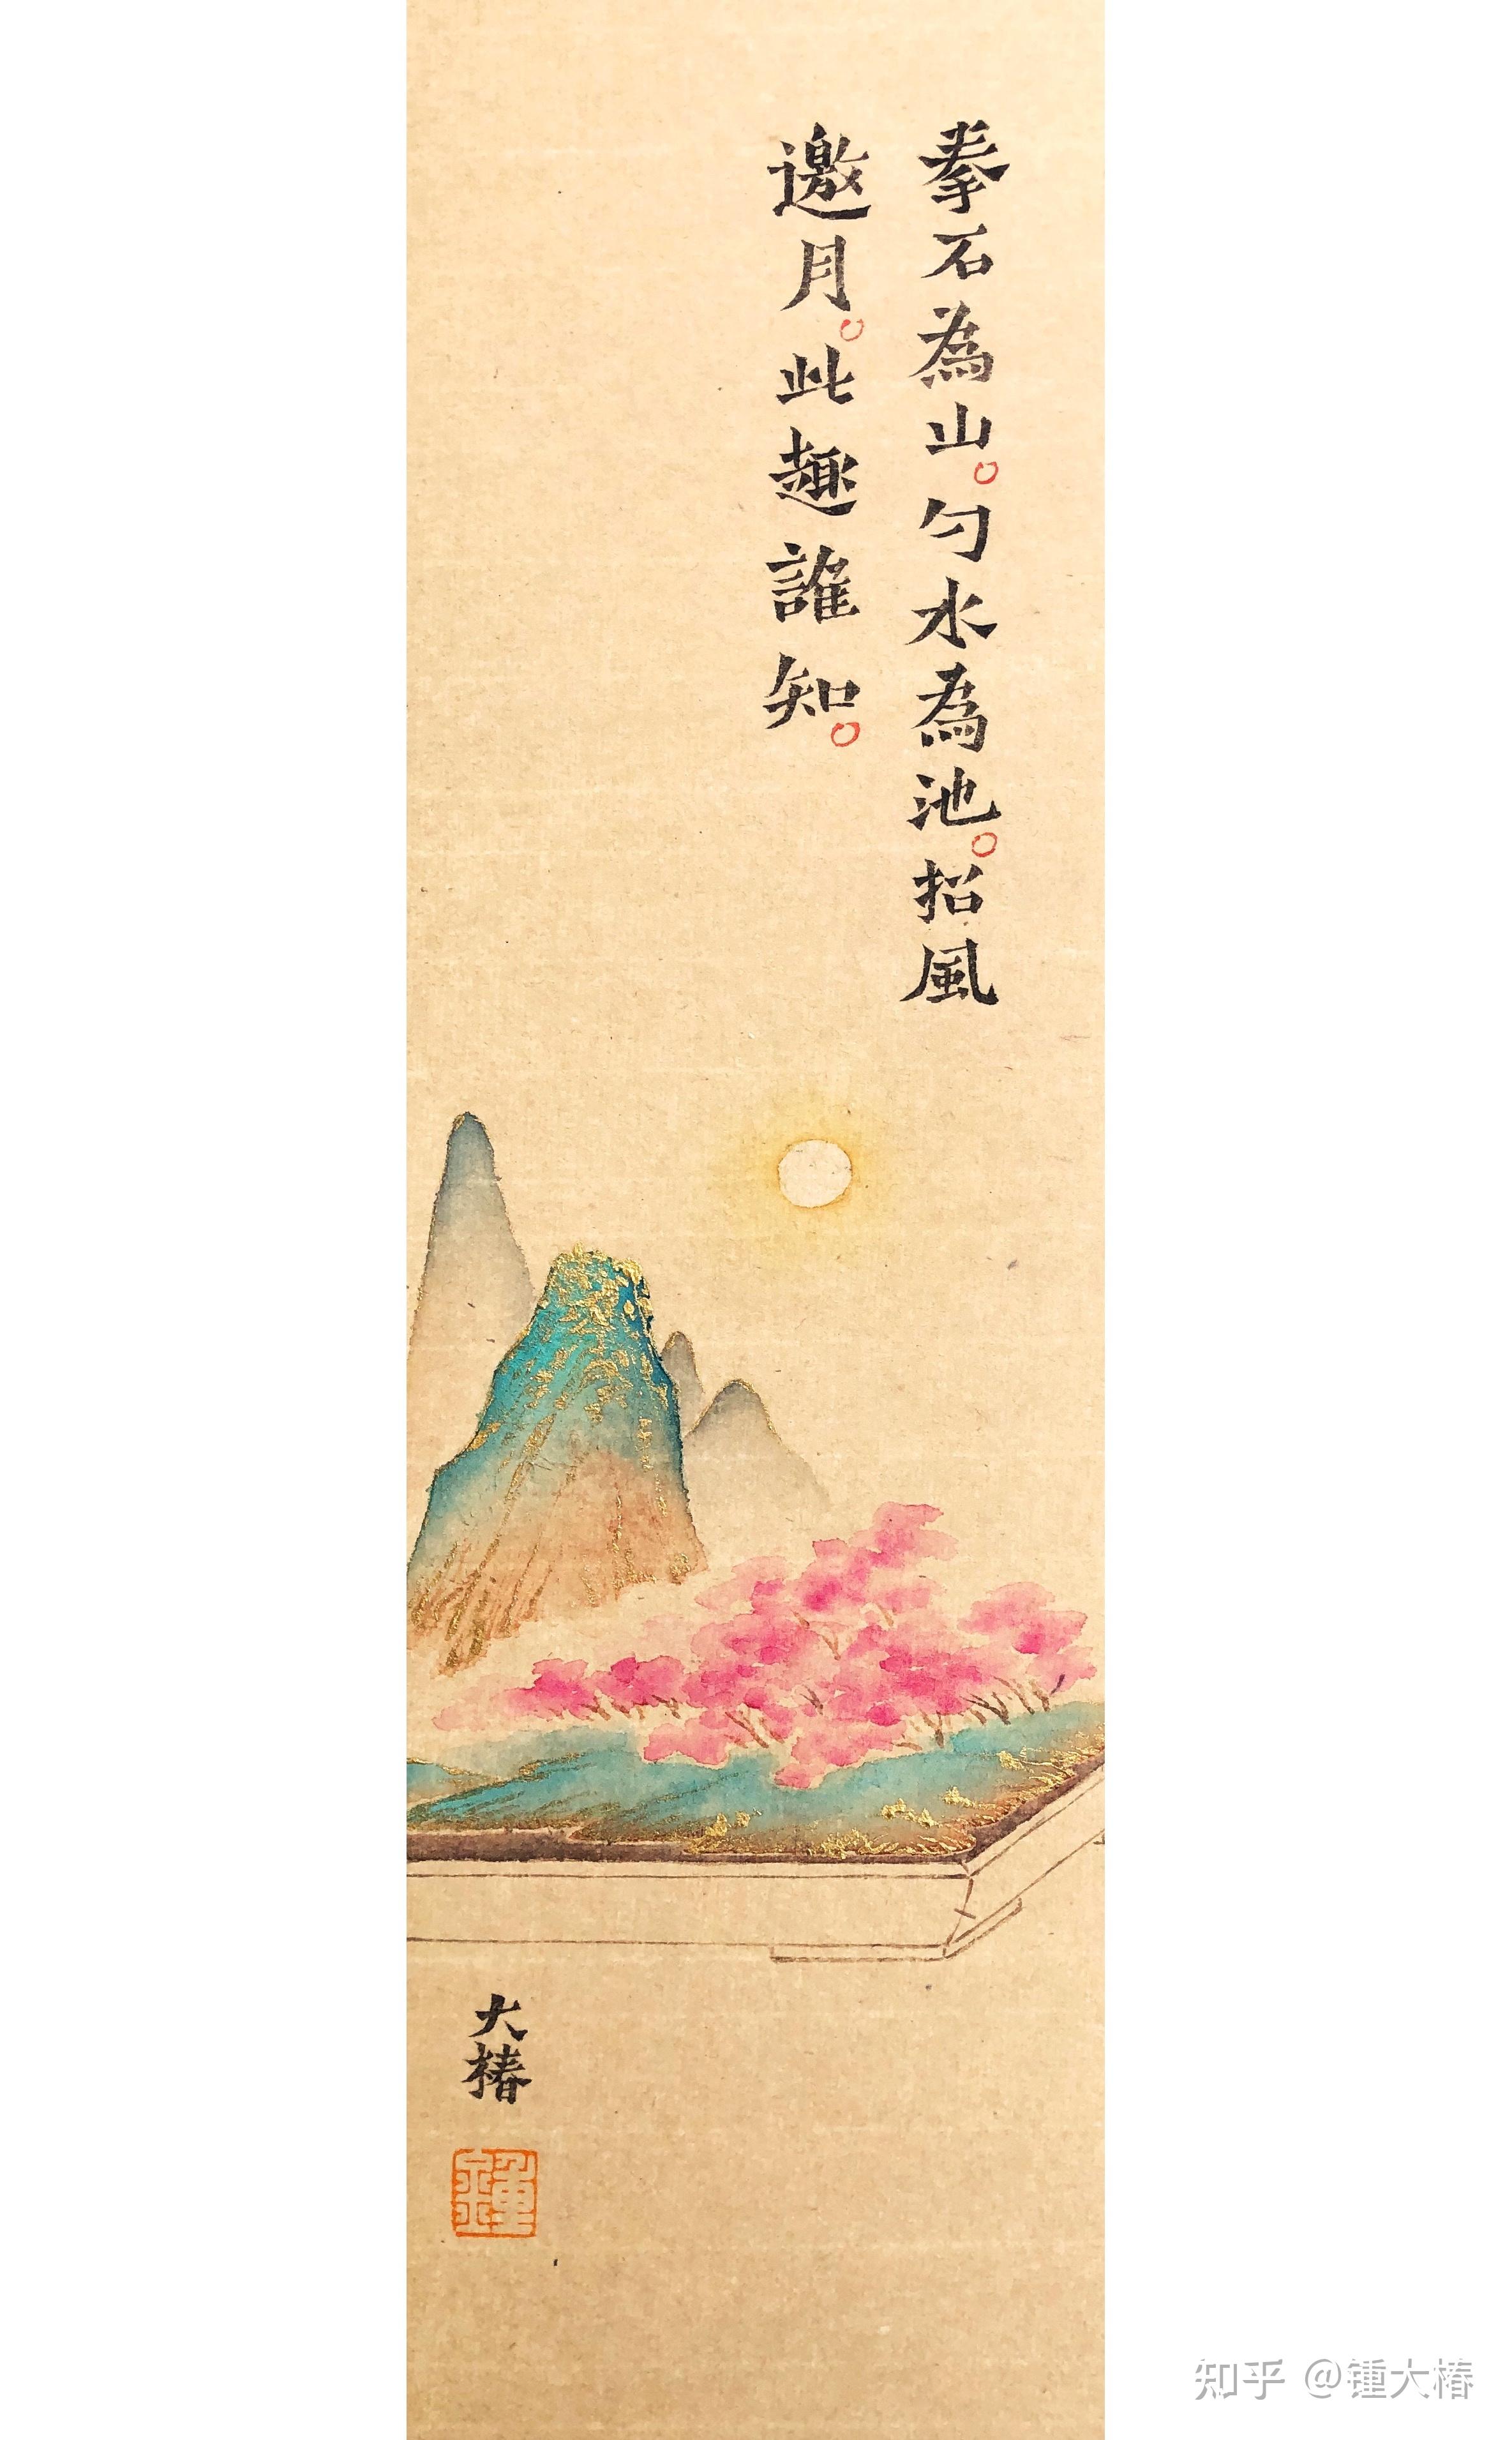 拳石為山。勺水為池。招風
邀月。此趣誰知。
大椿
鍾
知乎 @锺大椿